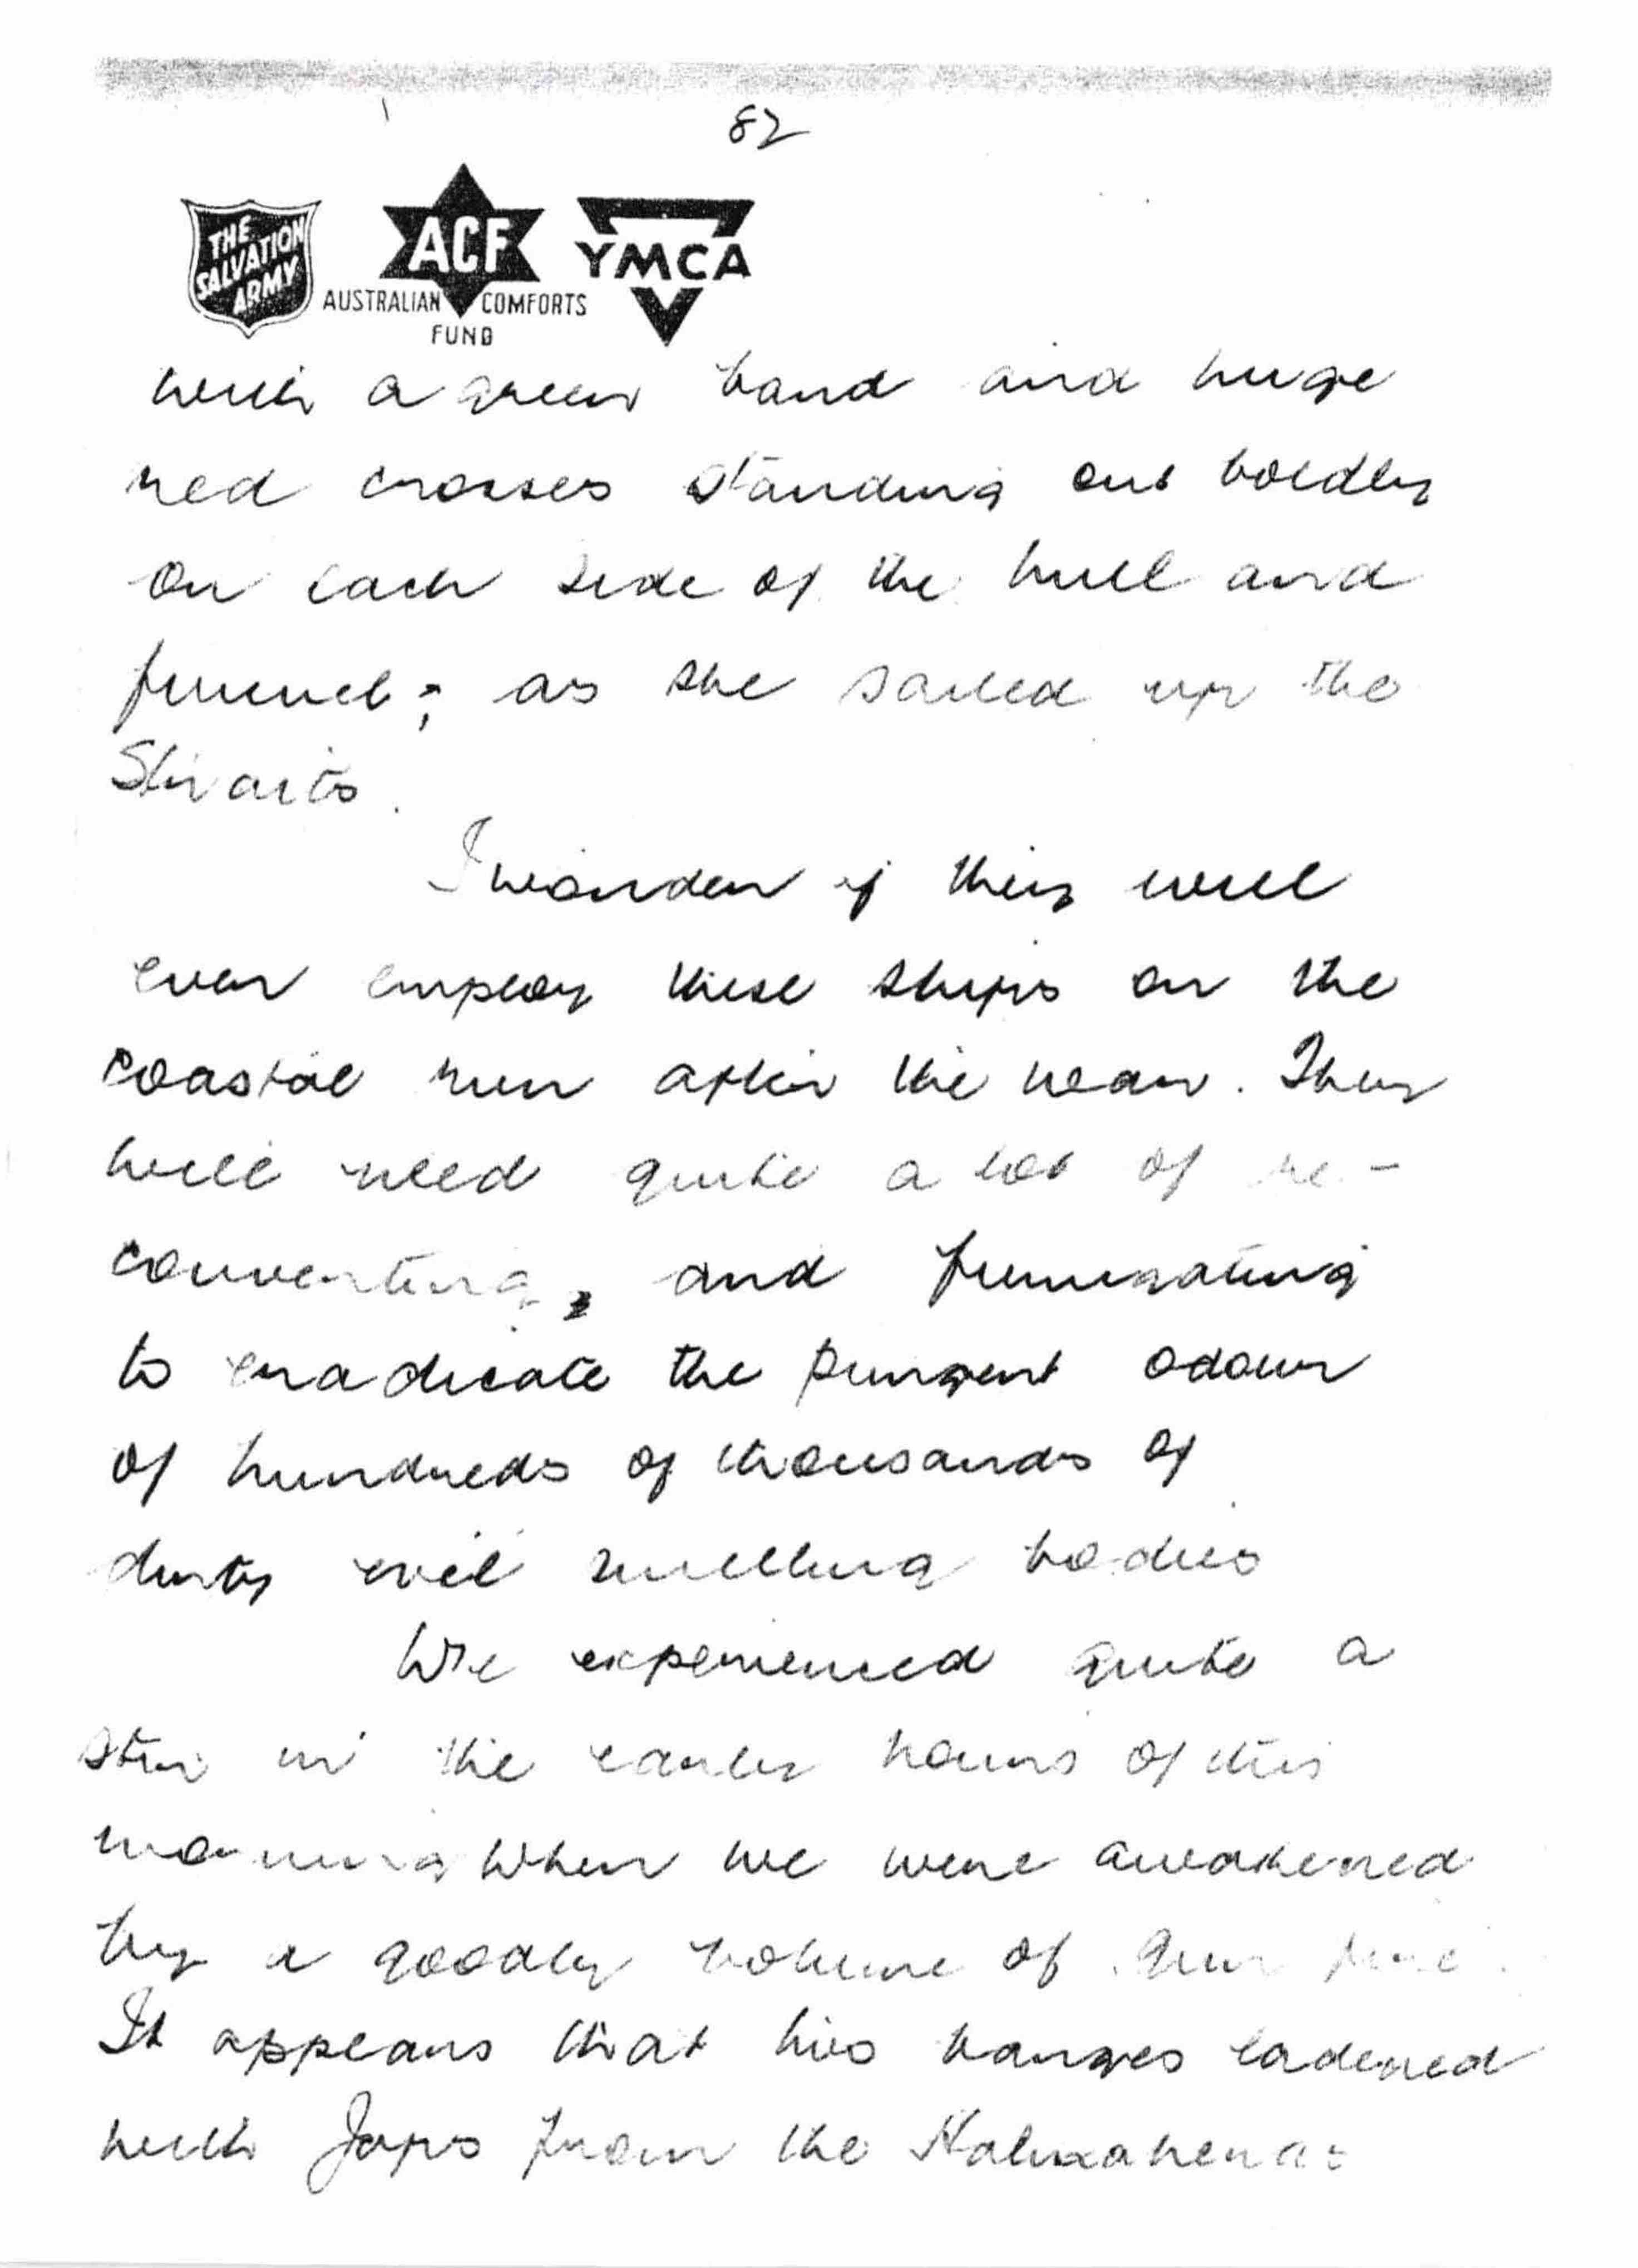 82
THE
SALVATION
ARMY
ACF
AUSTRALIAN COMFORTS
FUND
YMCA
with a green band and huge
red crosses standing out boldly
on each side of the hull and
funnel; as she sailed up the
Straits.
I wonder if they will
ever employ these ships on the
coastal run after the war. They
will need quite a lot of re-
converting, and fumigating
to eradicate the pungent odour
of hundreds of thousands of
dirty evil smelling bodies
We experienced quite a
stir in the early hours of this
morning when we were awakened
by a goodly volume of gun fire.
It appears that two barges ladened
with Japs from the Halmaheras